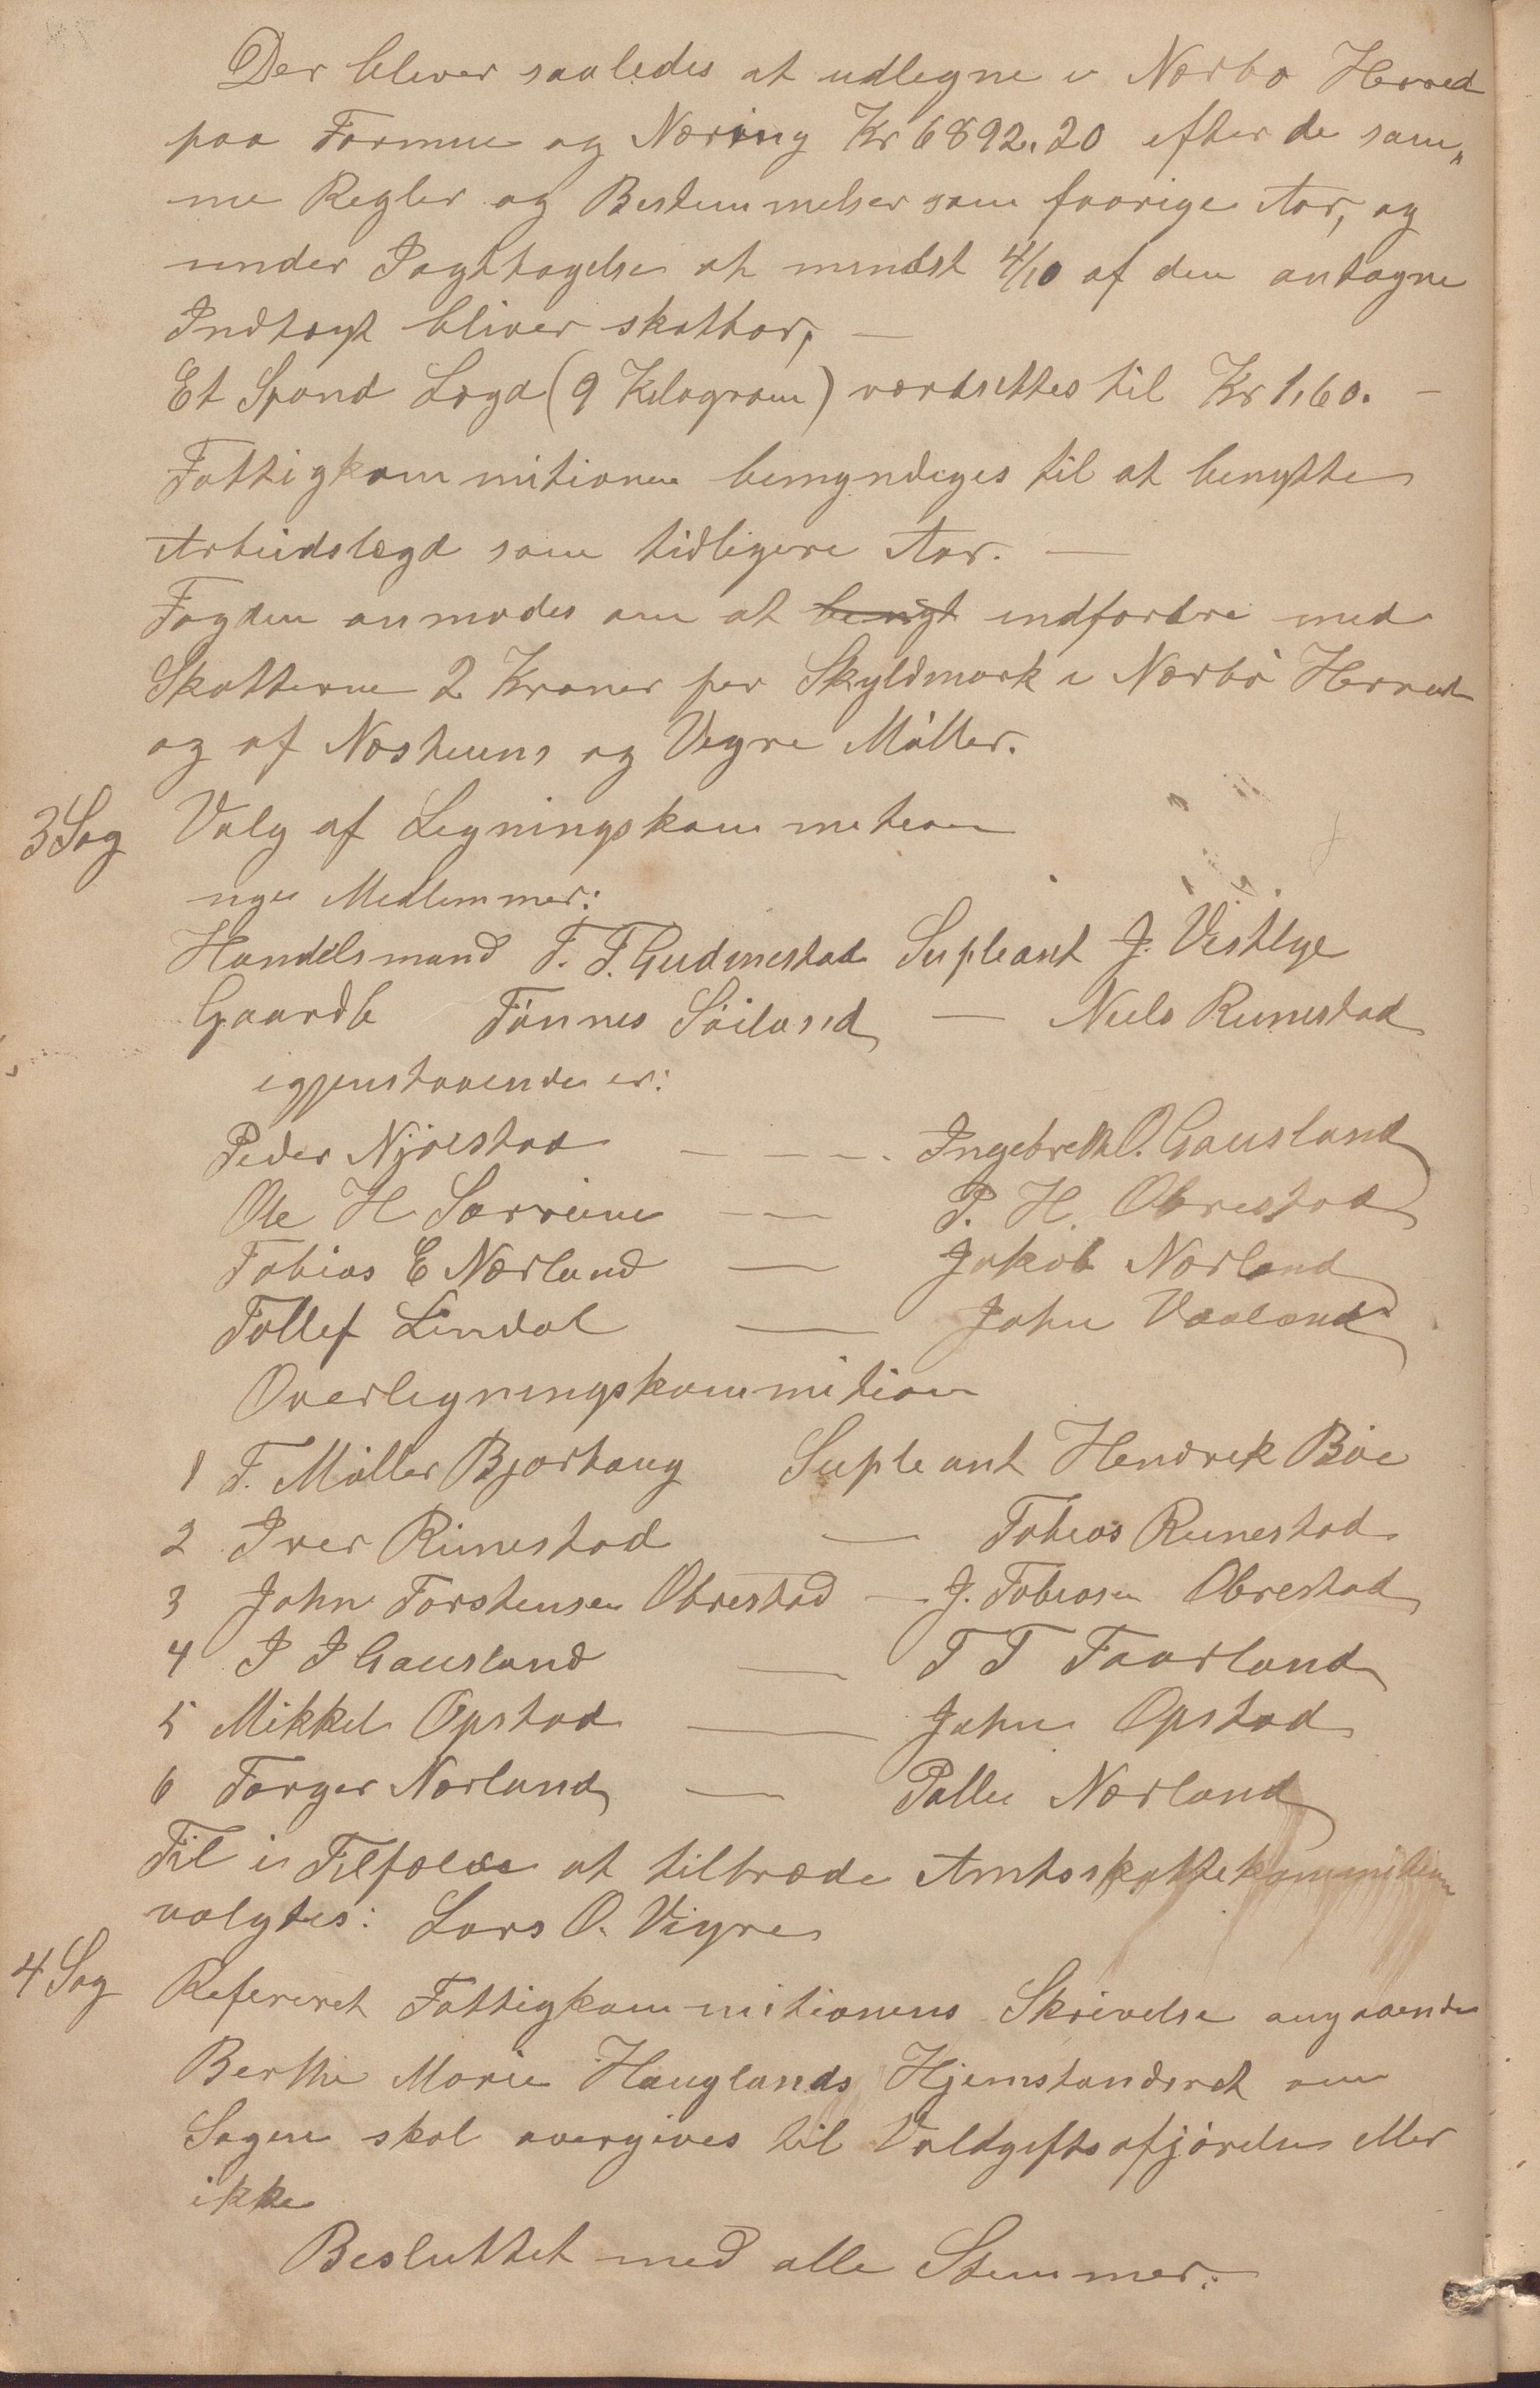 Der bliver saaledes at udlegne i Nærbø Herred
paa Formue og Næring Kr 6892,20 efter de sam„
me Regler og Bestemmelser som forrige Aar, og
under Iagttagelse at mindst 4/10 af den antagne
Indtægt bliver skattbar, —
Et Spand Lægd (9 Kilogram) værdsettes til Kr 1,60. —
Fattigkommitionen bemyndiges til at benytte
Arbeidslægd som tidligere Aar. —
Fogden anmodes om at benyt indfordre med
Skatterne 2 Kroner per Skyldmark i Nærbö Herred
og af Næsteens og Vigre Möller.
3 Sag Valg af Ligningskommition
nye Medlemmer:
Handelsmand T. T. Gudmestad Supleant J. Vistlye
Gaardb Tönnes Söiland — Niels Rimestad
igjenstaaende er:
Peder Njælstad — — — Ingebreth O. Gausland
Ole H Særreime — — P. H. Obrestad
Tobias E Nærland — Jakob Nærland
Tollef Lindal — John Vaaland
Overligningskommition
1 T. Möller Bjorhaug Supleant Hendrek Böe
2 Iver Rimestad — Tobias Rimestad
3 John Torstensen Obrestad — J. Tobiasen Obrestad
4 I I Gausland — T T Taarland
5 Mikkel Opstad — John Opstad
6 Torger Nærland — Palle Nærland
Til i Tilfælde at tiltræde Amtsskattekommition
valgtes: Lars O. Vigre
4 Sag Refereret Fattigkommitionens Skrivelse angaaende
Berthe Marie Hauglands Hjemstandsret om
Sagen skal overgives til Voldgiftsafjörelse eller
ikke
Besluttet med alle Stemmer: